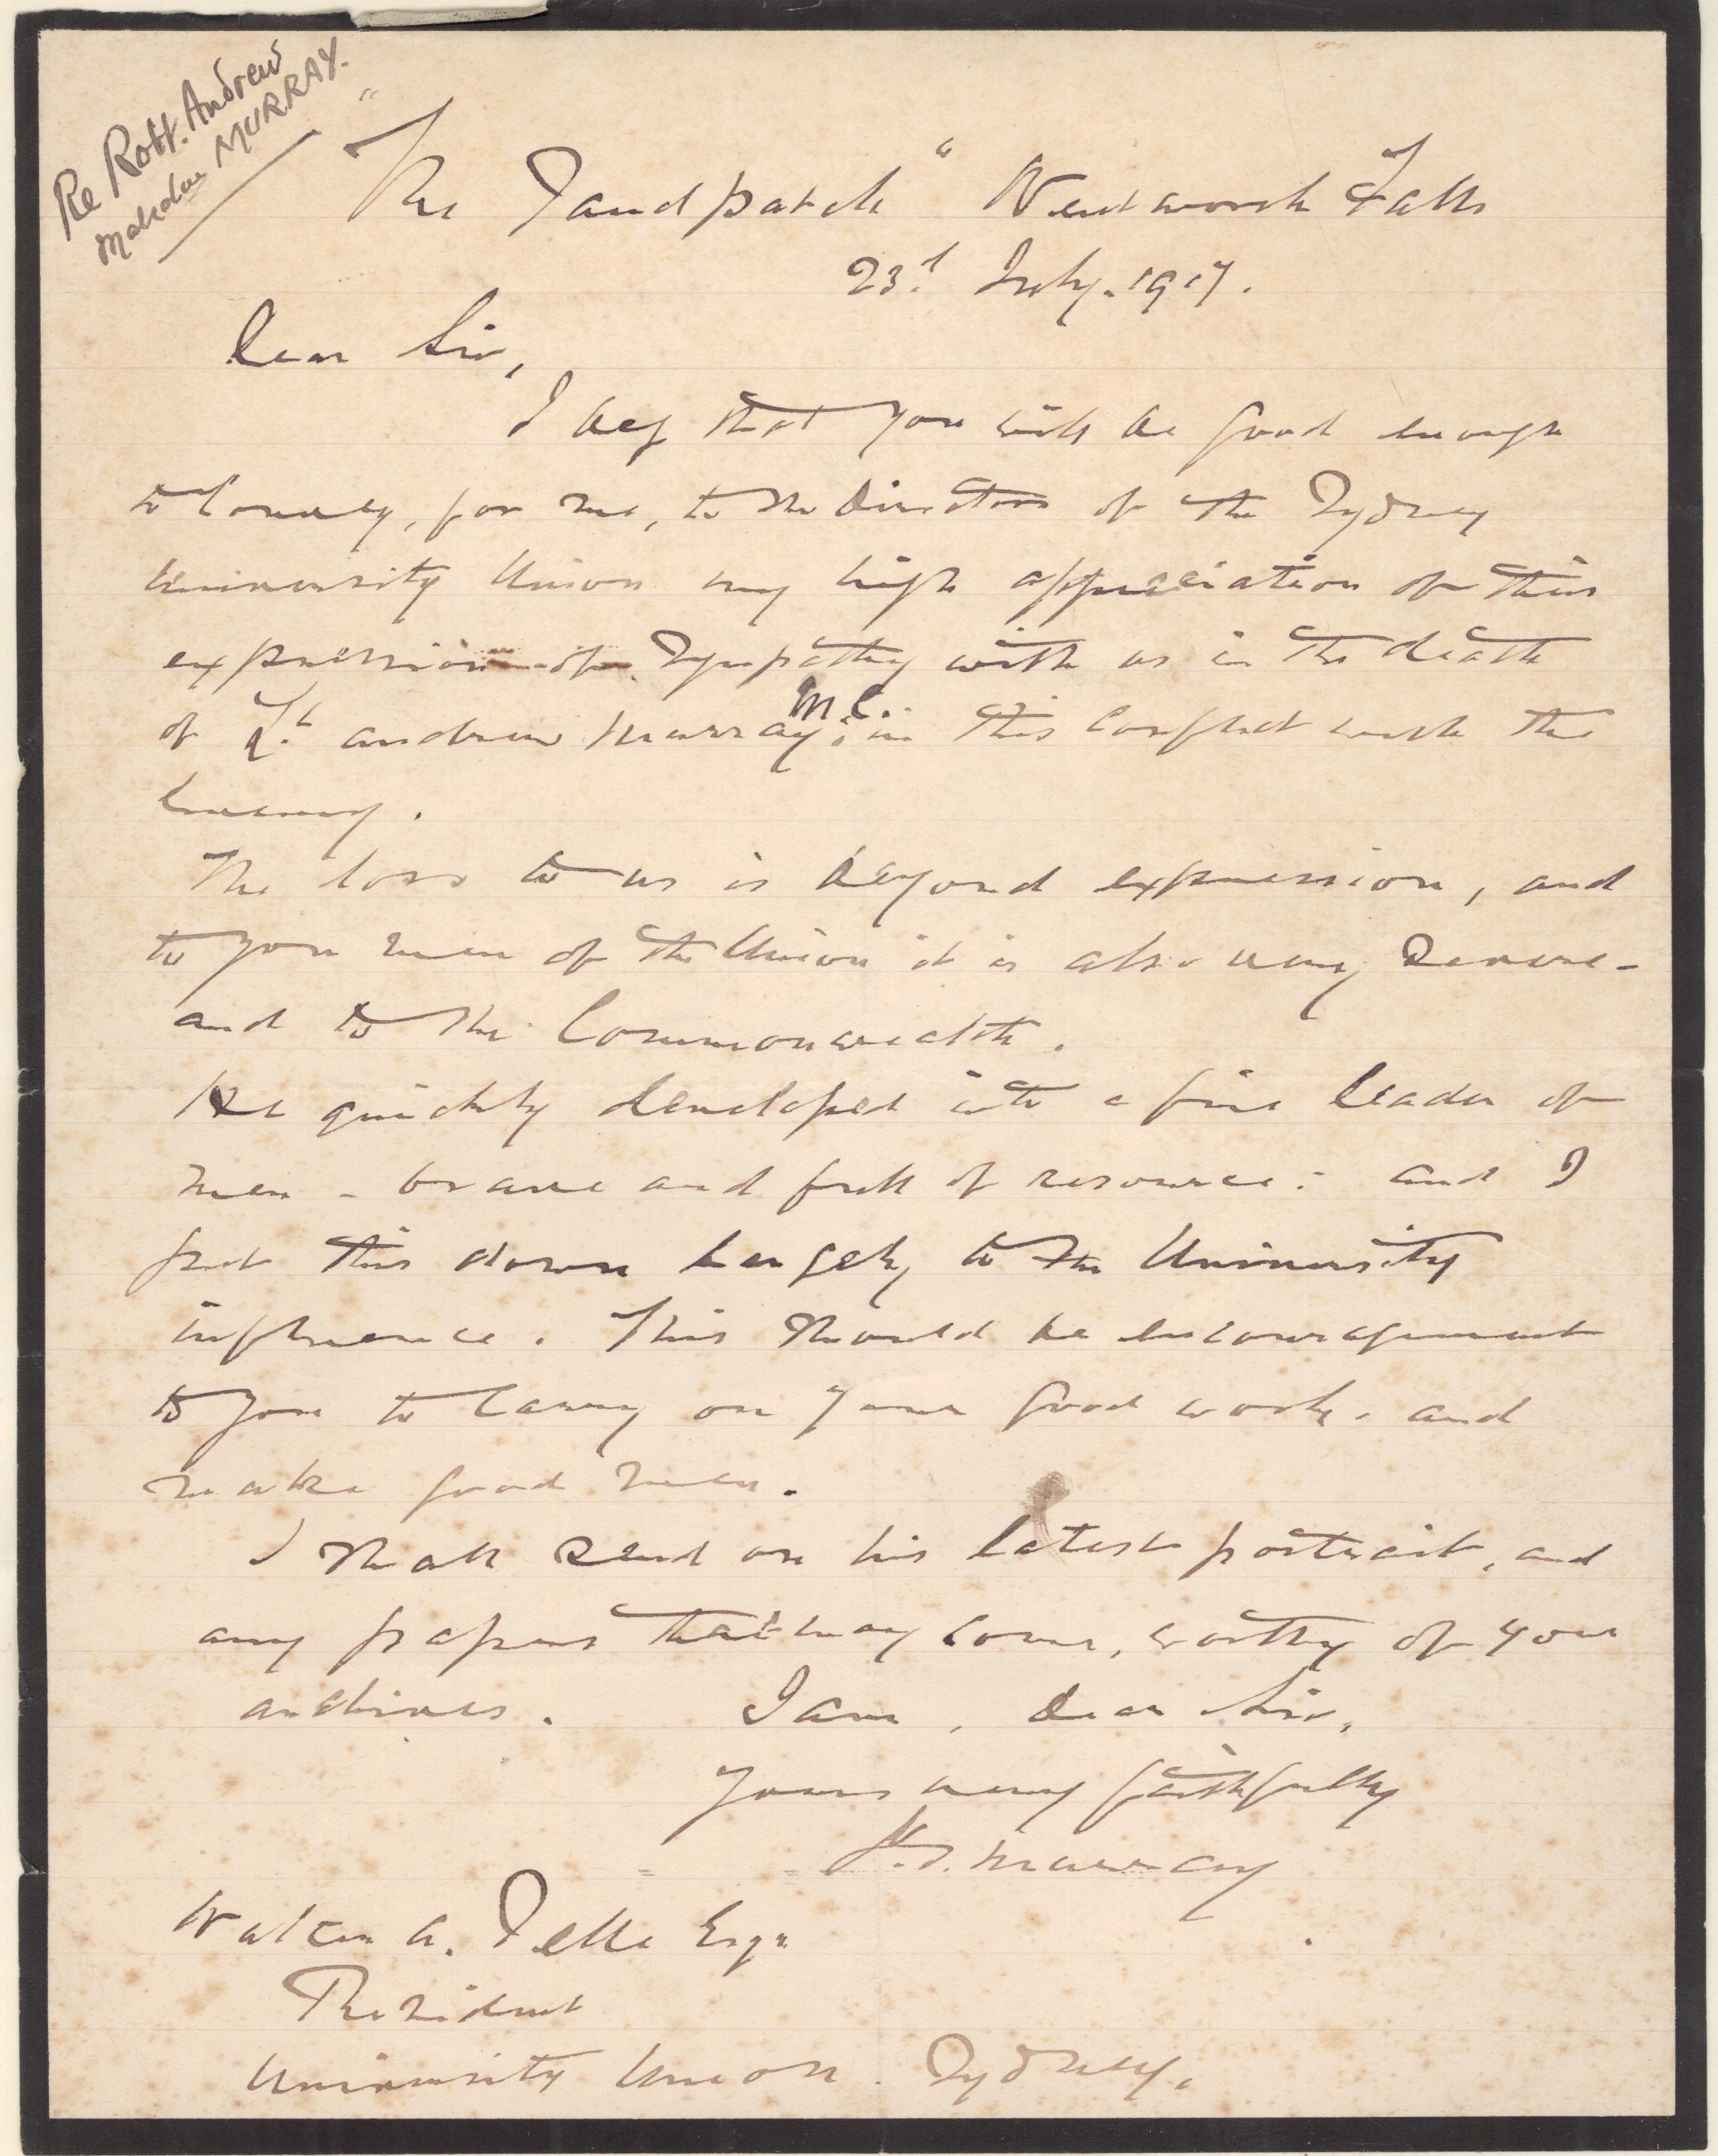 Re Robt. Andrew
MURRAY.
"The Sandpatch" Wentworth Falls
23d July. 1917.
Dear Sir,
I beg that you will be good enough
to convey, for me, to the Directors of the Sydney
University Union my high appreciation of their
expression of sympathy with us in the death
of Lt. Andrew Murray, M.C. in this conflict with the
enemy.
The loss to us is beyond expression, and
to you men of the Union it is also very severe -
and to the Commonwealth.
He quickly developed into a fine leader of
men - brave and full of resource: and I
put this down largely to the University
influence. This should be encouragement
to you to carry on your good work. and
make good men.
I shall send on his latest portrait, and
any papers that may come, worthy of your
archives. I am, dear Sir,
Yours very faithfully
Murray
Walter A. Selle Esqr
President
University Union. Sydney.